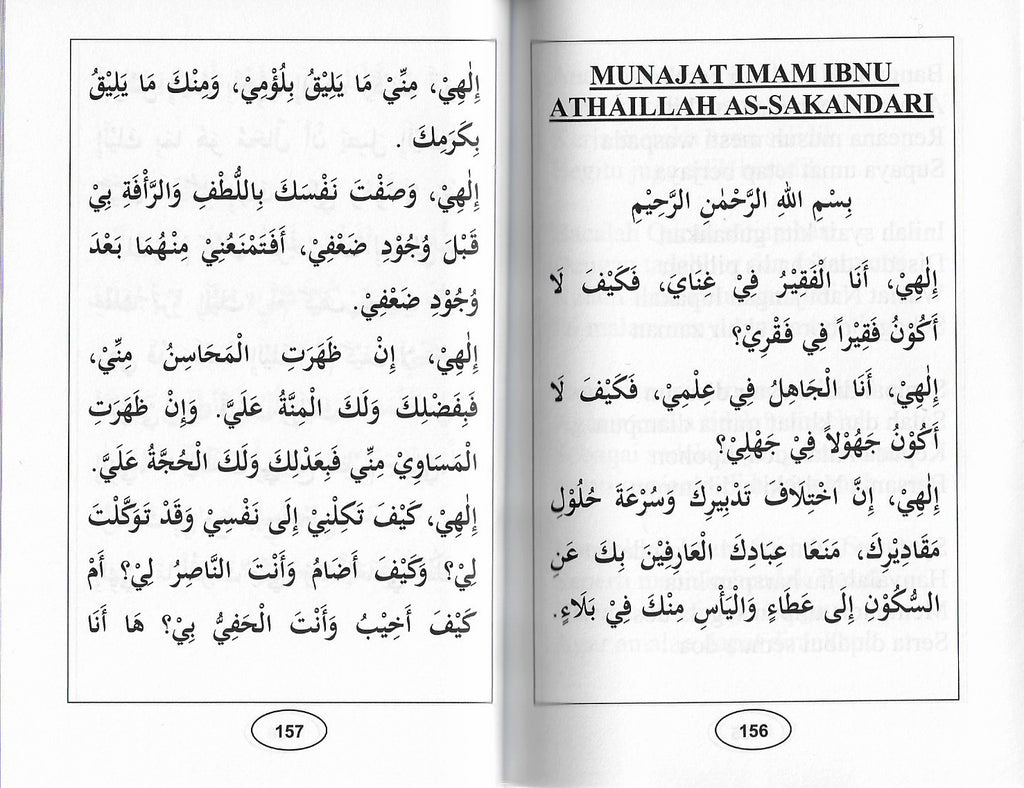 MUNAJAT IMAM IBNU
ATHAILLAH AS-SAKANDARI
بِسْمِ اللهِ الرَّحْمٰنِ الرَّحِيْمِ
إِلٰهِيْ، أَنَا الْفَقِيْرُ فِيْ غِنَايَ، فَكَيْفَ لَا
أَكُوْنُ فَقِيْراً فِي فَقْرِيْ؟
إِلٰهِيْ، أَنَا الْجَاهِلُ فِي عِلْمِيْ، فَكَيْفَ لَا
أَكُوْنُ جَهُوْلاً فِيْ جَهْلِيْ؟
إِلٰهِيْ، إِنَّ اخْتِلَافَ تَدْبِيْرِكَ وَسُرْعَةَ حُلُوْلِ
مَقَادِيْرِكَ، مَنَعَا عِبَادِكَ الْعَارِفِيْنَ بِكَ عَنِ
السُّكُوْنِ إِلَى عَطَاءٍ وَالْيَأْسِ مِنْكَ فِيْ بَلَاءٍ.
156
إِلٰهِيْ، مِنِّيْ مَا يَلِيْقُ بِلُؤْمِيْ، وَمِنْكَ مَا يَلِيْقُ
بِكَرَمِكَ .
إِلٰهِيْ، وَصَفْتَ نَفْسَكَ بِاللُّطْفِ وَالرَّأْفَةِ بِيْ
قَبْلَ وُجُوْدِ ضَعْفِيْ، أَفَتَمْنَعُنِيْ مِنْهُمَا بَعْدَ
وُجُوْدِ ضَعْفِيْ.
إِلٰهِيْ، إِنْ ظَهَرَتِ الْمَحَاسِنُ مِنِّيْ،
فَبِفَضْلِكَ وَلَكَ الْمِنَّةُ عَلَيَّ. وَإِنْ ظَهَرَتِ
الْمَسَاوِيْ مِنِّي فَبِعَدْلِكَ وَلَكَ الْحُجَّةُ عَلَيَّ.
إِلٰهِيْ، كَيْفَ تَكِلْنِيْ إِلَى نَفْسِيْ وَقَدْ تَوَكَّلْتَ
لِيْ؟ وَكَيْفَ أُضَامُ وَأَنْتَ النَّاصِرُ لِيْ؟ أَمْ
كَيْفَ أَخِيْبُ وَأَنْتَ الْحَفِيُّ بِيْ؟ هَا أَنَا
157